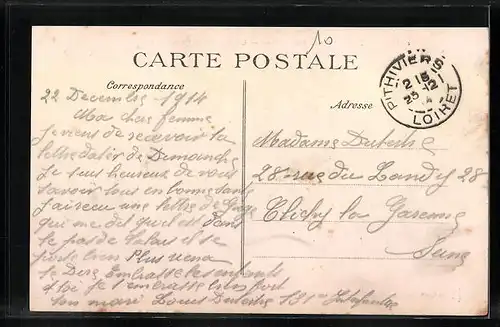 10
CARTE POSTALE
Correspondance
Adresse
PITHIVIERS
2 15
23 12
LOIRET
22 Decembre 1914
Ma cher femme
je viens de recevoir ta
lettre dater de Dimanche
je suis heureux de vous
savoir tous en bonne santé
j'ai recu une lettre de
qui me dit qu'il est dans
le pas de Calais il se
porte bien Plus rien a
te Dire Embrasse les enfants
et toi je t'embrasse bien fort
ton mari Louis Dutertre 131me Infanterie
Madame Dutertre
28 rue du Landy 28
Clichy la Garenne
Seine